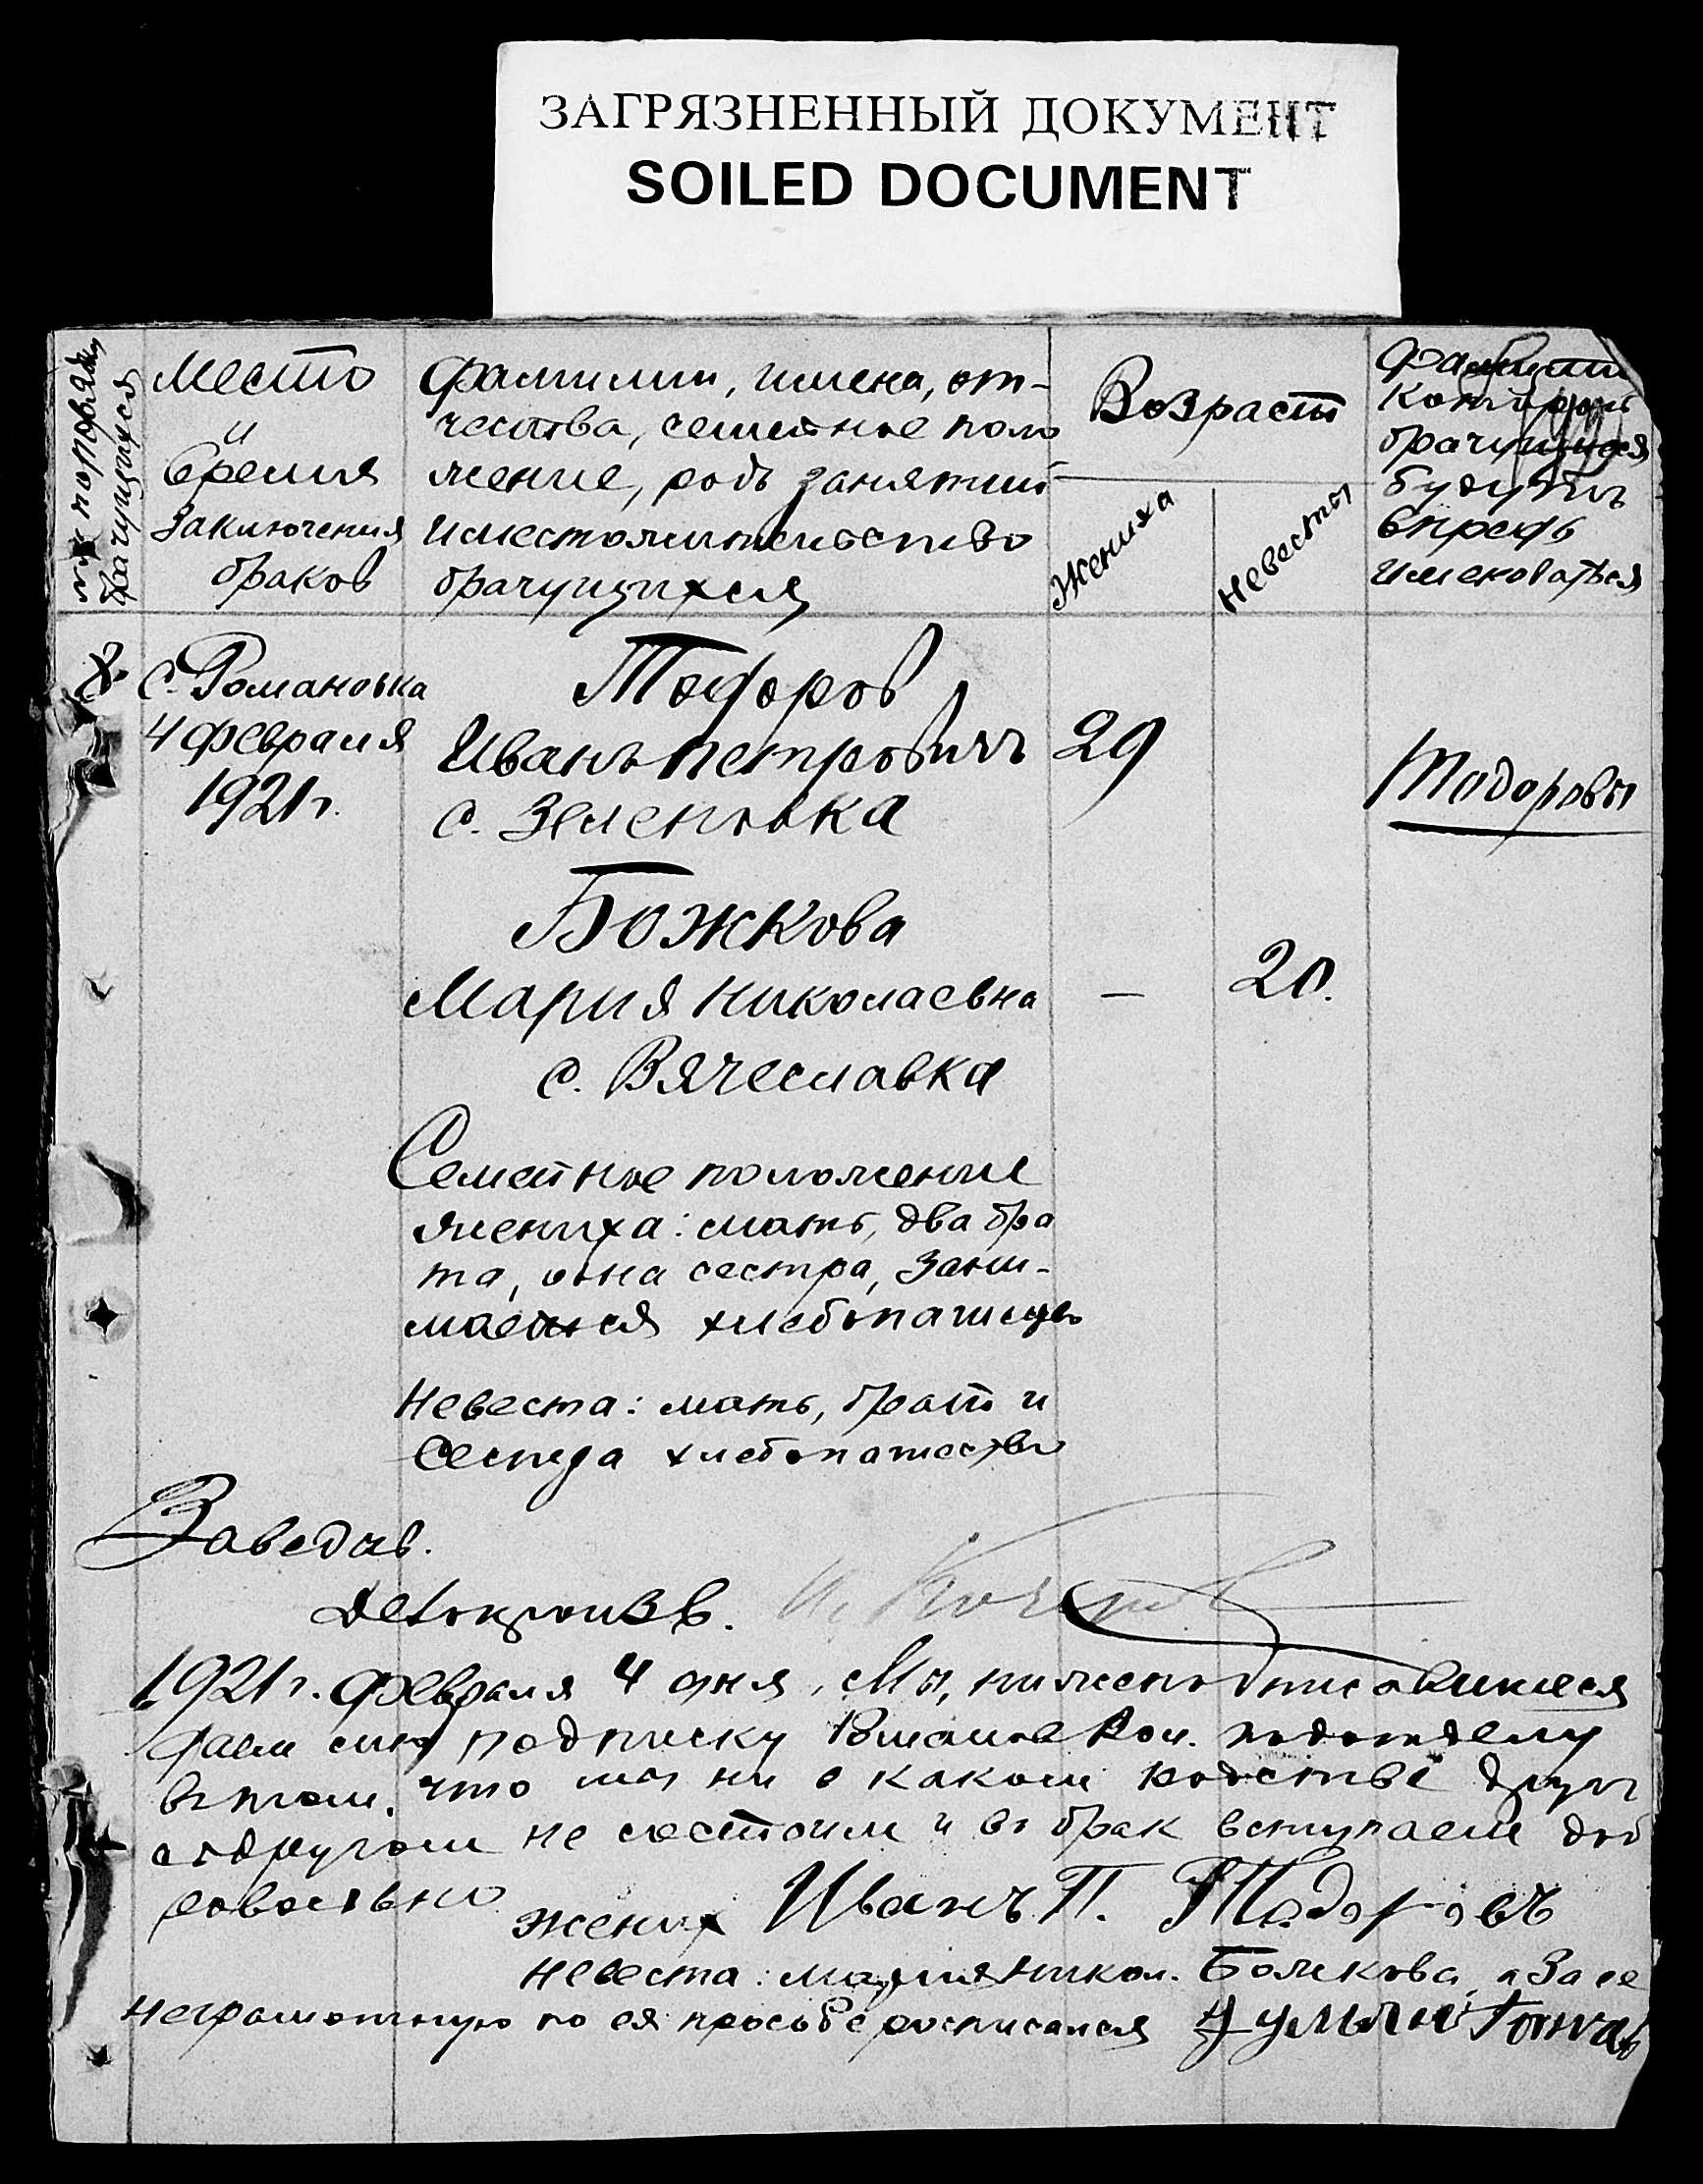 ЗАГРЯЗНЕННЫЙ ДОКУМЕНТ
SOILED DOCUMENT
по порядку
брачущихся
Место
и
время
заключения
браков
Фамилии, имена, от-
чества, семейное поло
жение, родъ занятий
и местожительство
брачущихся
Возраст
Жениха
Невесты
Фамилии
которой
брачущиеся
будутъ
впредь
именоваться
8.
с. Романовка
4 февраля
1921 г.
Тодоров
Иванъ Петровичъ
с. Зеленовка
29
Тодоровы
Божкова
Мария Николаевна
с. Вячеславка
—
20.
Семейное положение
жениха: мать, два бра
та, одна сестра, зани-
мается хлебопашество
Невеста: мать, брат и
Сестра хлебопашество
Заведыв.
Делопроизв.
1921 г. февраля 4 дня, Мы, нижеподписавшиеся
даем сию подписку подотделу
въ том, что мы ни в каком родстве другъ
съ другом не состоим и въ брак вступаем доб
ровольно
жених Иванъ П. Тодоровъ
невеста: мария никол. Божкова, а за ее
неграмотную по ея просьбе росписался